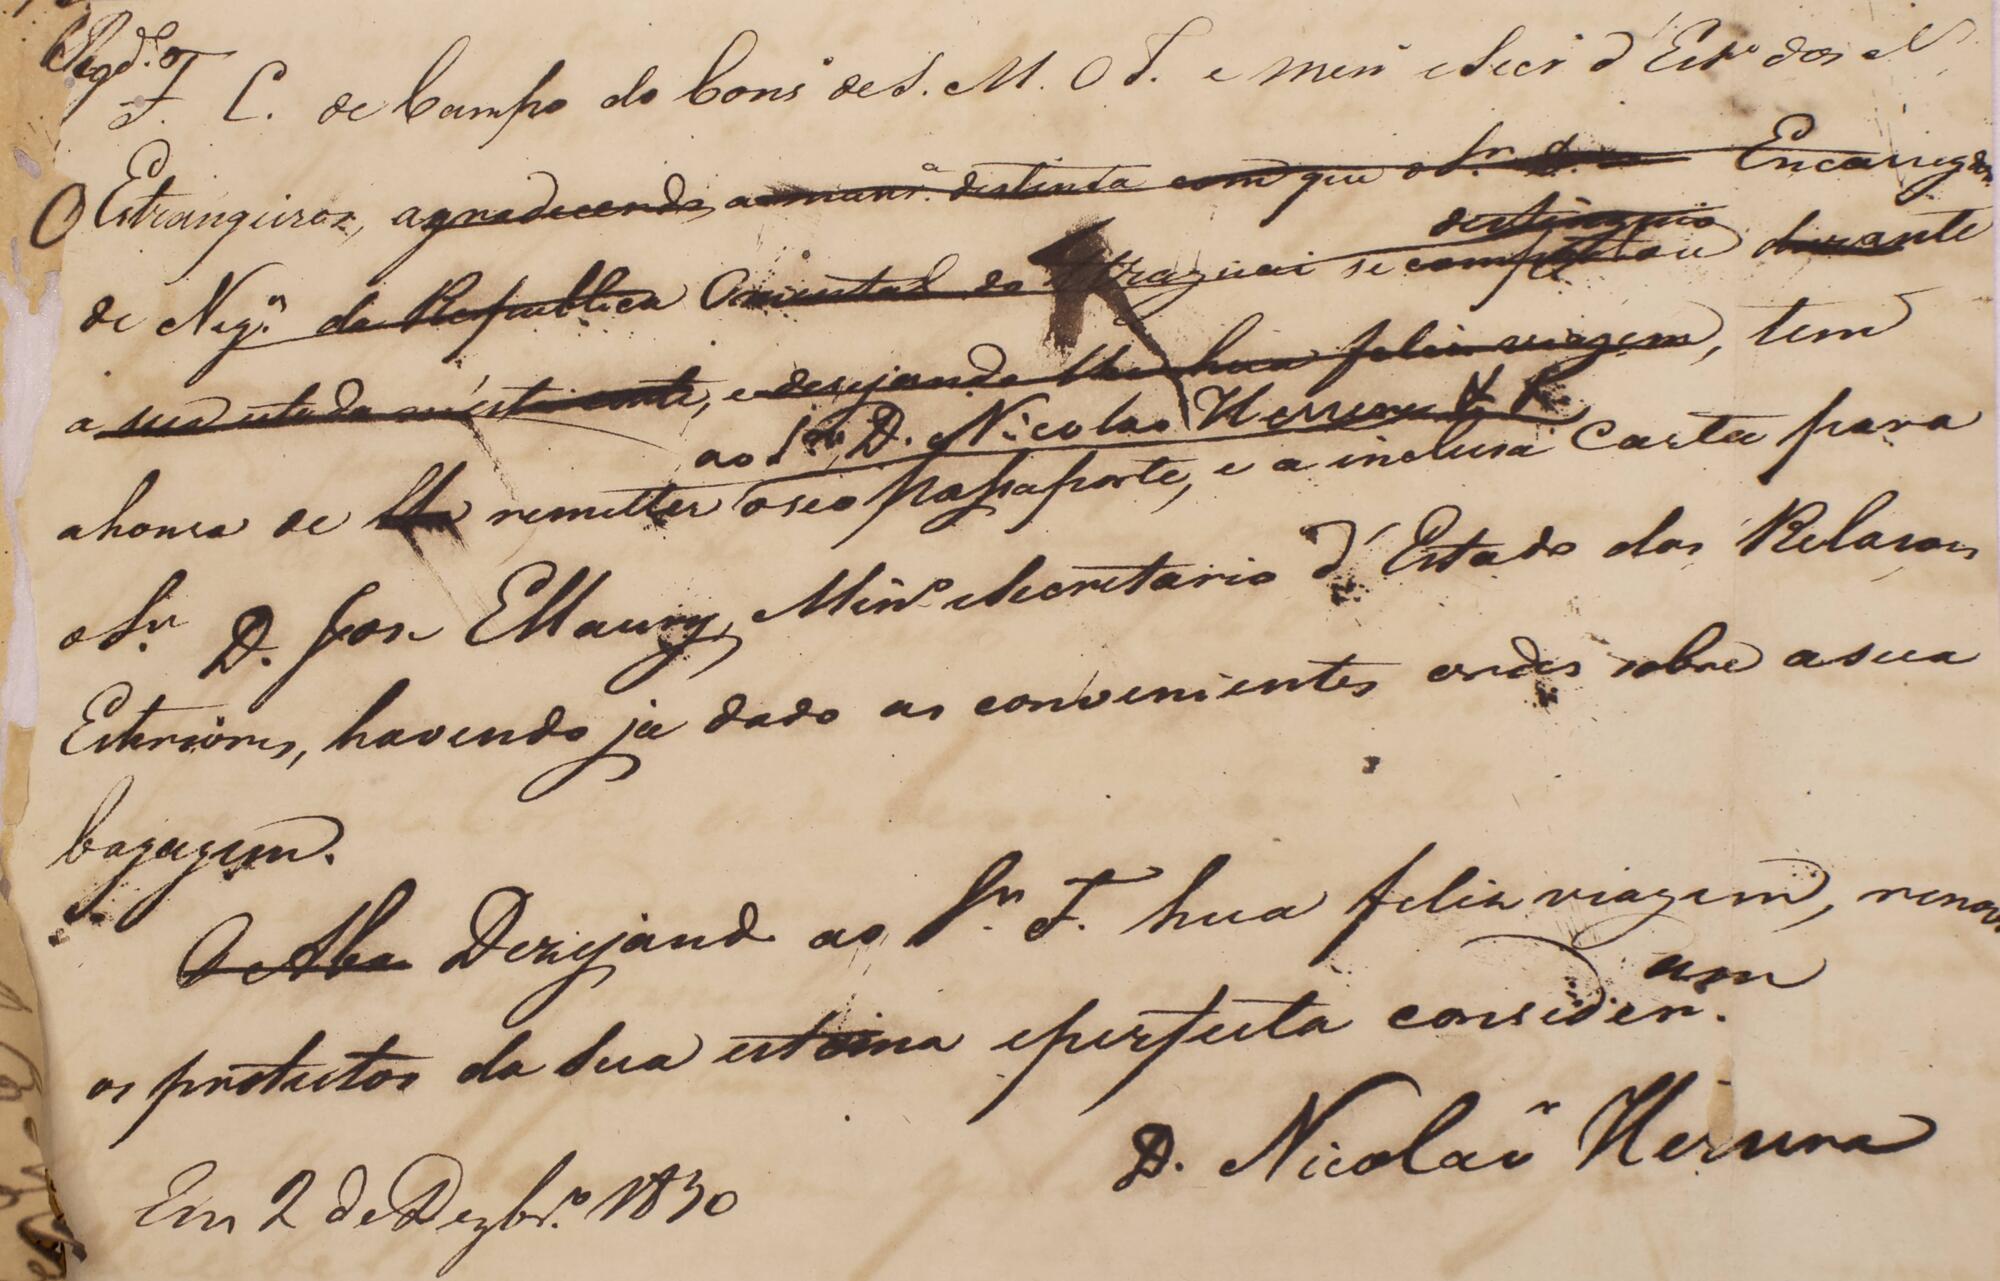 Regd.o
F. C. de Campo do Cons.o de S. M. O I. e Min.o e Secr.o d'Est.o dos N.
Estrangeiros, agradecendo a man.ra distincta com que o Sr. D. Encarregdo
de Neg.os da Republica Oriental do Uraguai se comportou distinguio durante
a sua estada n'esta corte, e desejando lhe hua feliz viagem, tem
ao Sr. D. Nicolao Herrera &
a honra de lhe remetter o seo passaporte, e a inclusa Carta para
o Sr. D. Jose Ellaury, Min.o e Secretario d'Estado das Relaçoes
Exteriores, havendo ja dado as convenientes ordes sobre a sua
bagagem.
O Aba Dezejand ao Sr. F. hua feliz viagem, renova
os protestos da sua estima e perfeita consider.am
D. Nicolao Herrera
Em 2 de Dezbr.o 1830